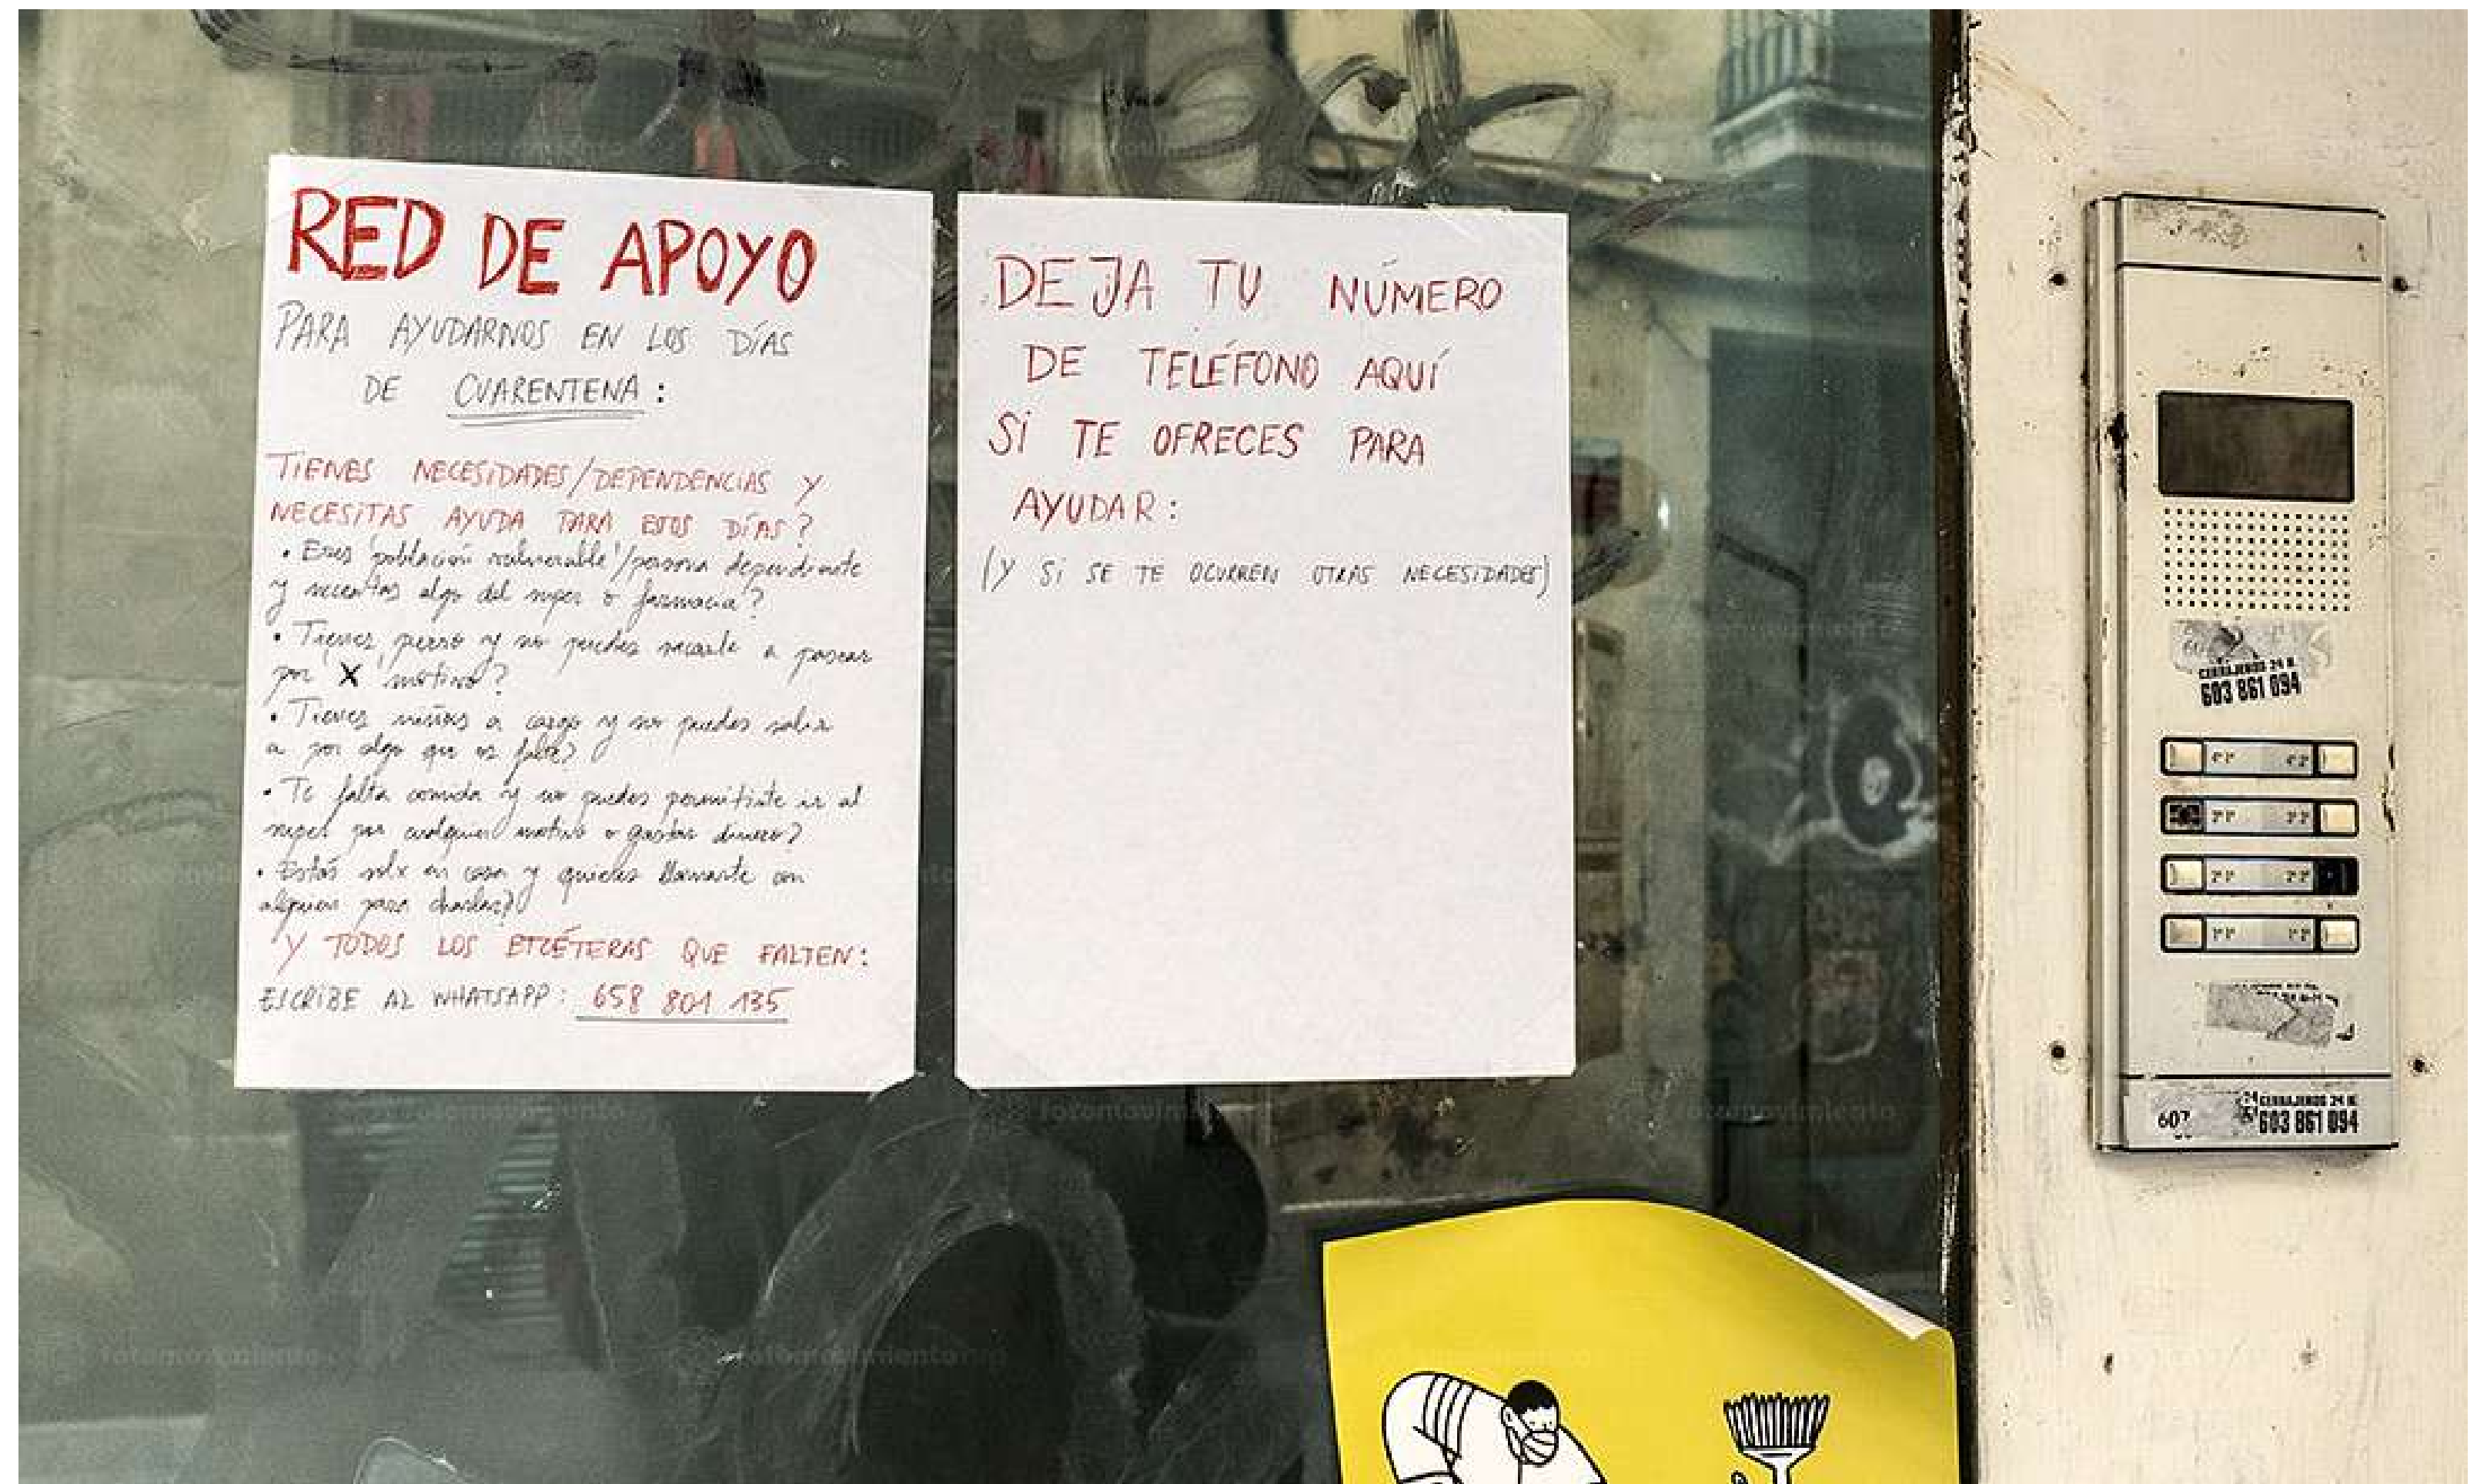 RED DE APOYO
PARA AYUDARNOS EN LOS DÍAS
DE CUARENTENA:
TIENES NECESIDADES/DEPENDENCIAS Y
NECESITAS AYUDA PARA ESTOS DÍAS?
• Eres 'población vulnerable'/persona dependiente
y necesitas algo del super o farmacia?
• Tienes perro y no puedes sacarle a pasear
por 'X' motivo?
• Tienes niñxs a cargo y no puedes salir
a por algo que os falte?
• Te falta comida y no puedes permitirte ir al
super por cualquier motivo o gastar dinero?
• Estás solx en casa y quieres llamarte con
alguien para charlar?
Y TODOS LOS ETCÉTERAS QUE FALTEN:
ESCRIBE AL WHATSAPP: 658 801 135
DEJA TU NÚMERO
DE TELÉFONO AQUÍ
SI TE OFRECES PARA
AYUDAR:
(Y SI SE TE OCURREN OTRAS NECESIDADES)
CERRAJEROS 24 H.
603 861 094
4º 1ª 4º 2ª
3º 1ª 3º 2ª
2º 1ª 2º 2ª
1º 1ª 1º 2ª
607
CERRAJEROS 24 H.
603 861 094
fotomovimiento